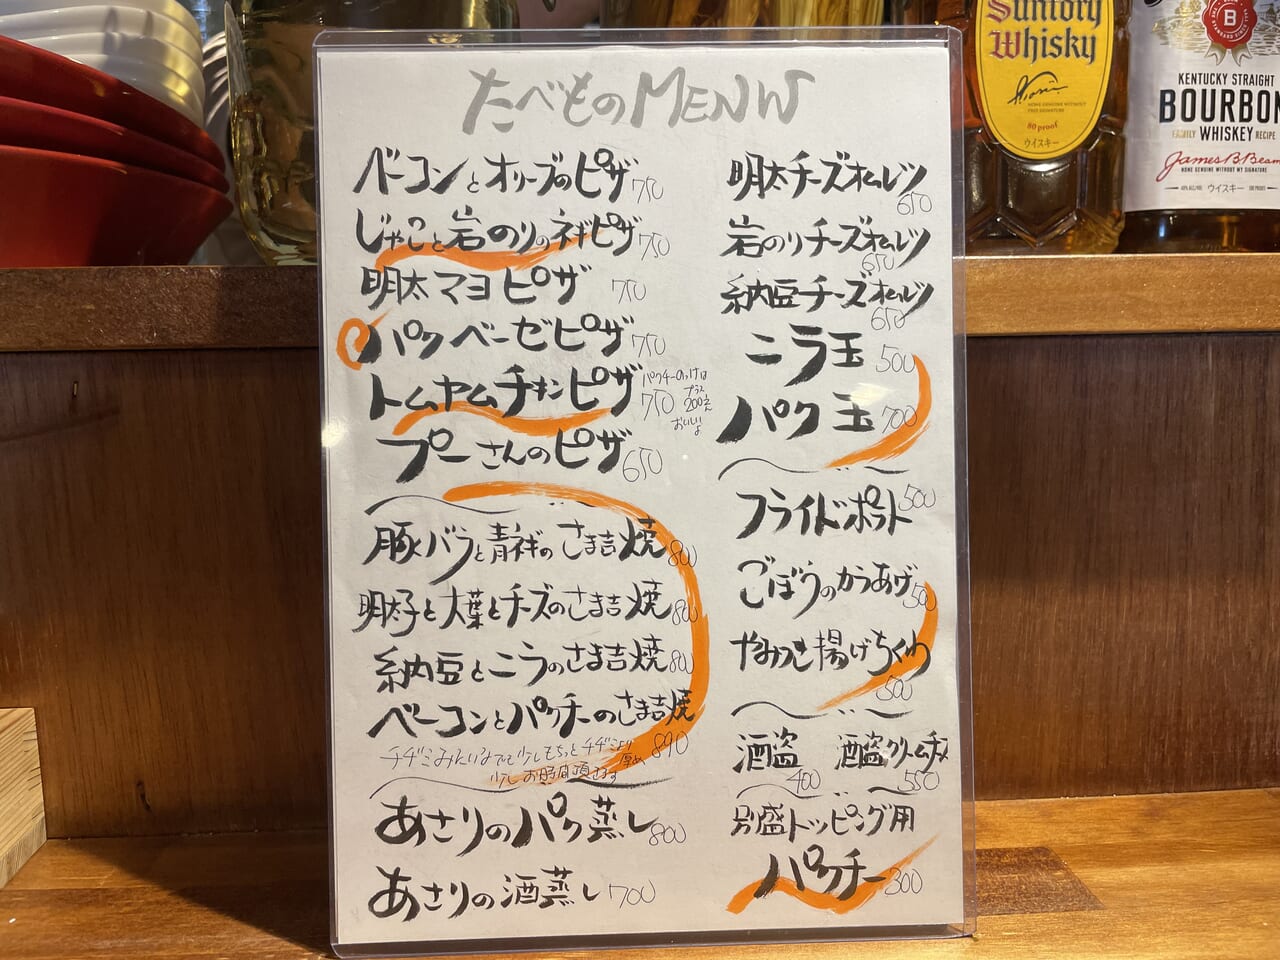 たべものMENU
ベーコンとオリーブのピザ 750
じゃこと岩のりのネギピザ 750
明太マヨピザ 750
パクベーゼピザ 750
トムヤムチキンピザ 750
パクチーのっけは
プラス
200えん
おいしいよ
プーさんのピザ 650
豚バラと青ネギのさま吉焼 800
明太子と大葉とチーズのさま吉焼 800
納豆とニラのさま吉焼 800
ベーコンとパクチーのさま吉焼 890
チヂミみたいなので少しもちっとチヂミより厚め
少しお時間頂きます
あさりのパク蒸し 800
あさりの酒蒸し 700
明太チーズオムレツ 650
岩のりチーズオムレツ 650
納豆チーズオムレツ 650
ニラ玉 500
パク玉 700
フライドポテト 500
ごぼうのからあげ 500
やみつき揚げちくわ 500
酒盗 400 酒盗クリームチーズ 550
別盛トッピング用
パクチー 300
Suntory
Whisky
80 proof
ウイスキー
B
KENTUCKY STRAIGHT
BOURBON
FAMILY WHISKEY RECIPE
James B. Beam
NONE GENUINE WITHOUT MY SIGNATURE
ウイスキー